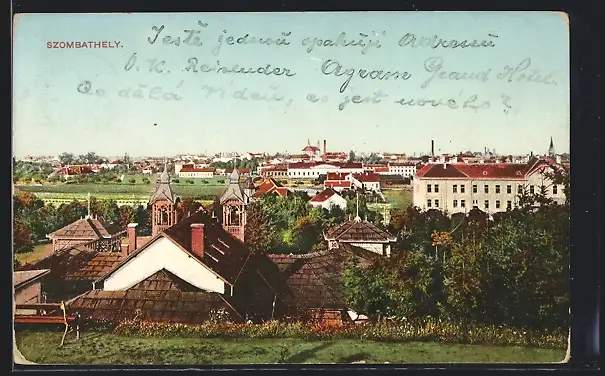 SZOMBATHELY.
Jestě jednou opakuji Adressu
O. K. Reisender Agram Grand Hotel
Co dělá Vídeň, co jest nového?